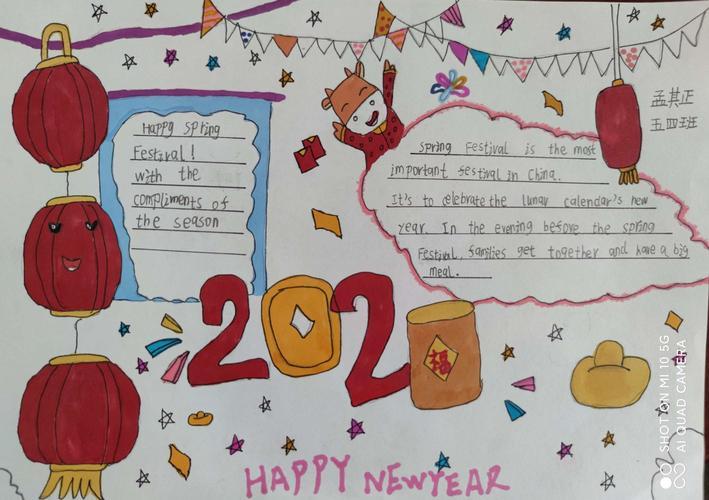 孟其正
五四班
Happy Spring
Festival!
with the
compliments of
the season
Spring Festival is the most
important festival in China.
It's to celebrate the lunar calendar's new
year. In the evening before the spring
Festival, families get together and have a big
meal.
202
福
HAPPY NEWYEAR
SHOT ON MI 10 5G
AI QUAD CAMERA